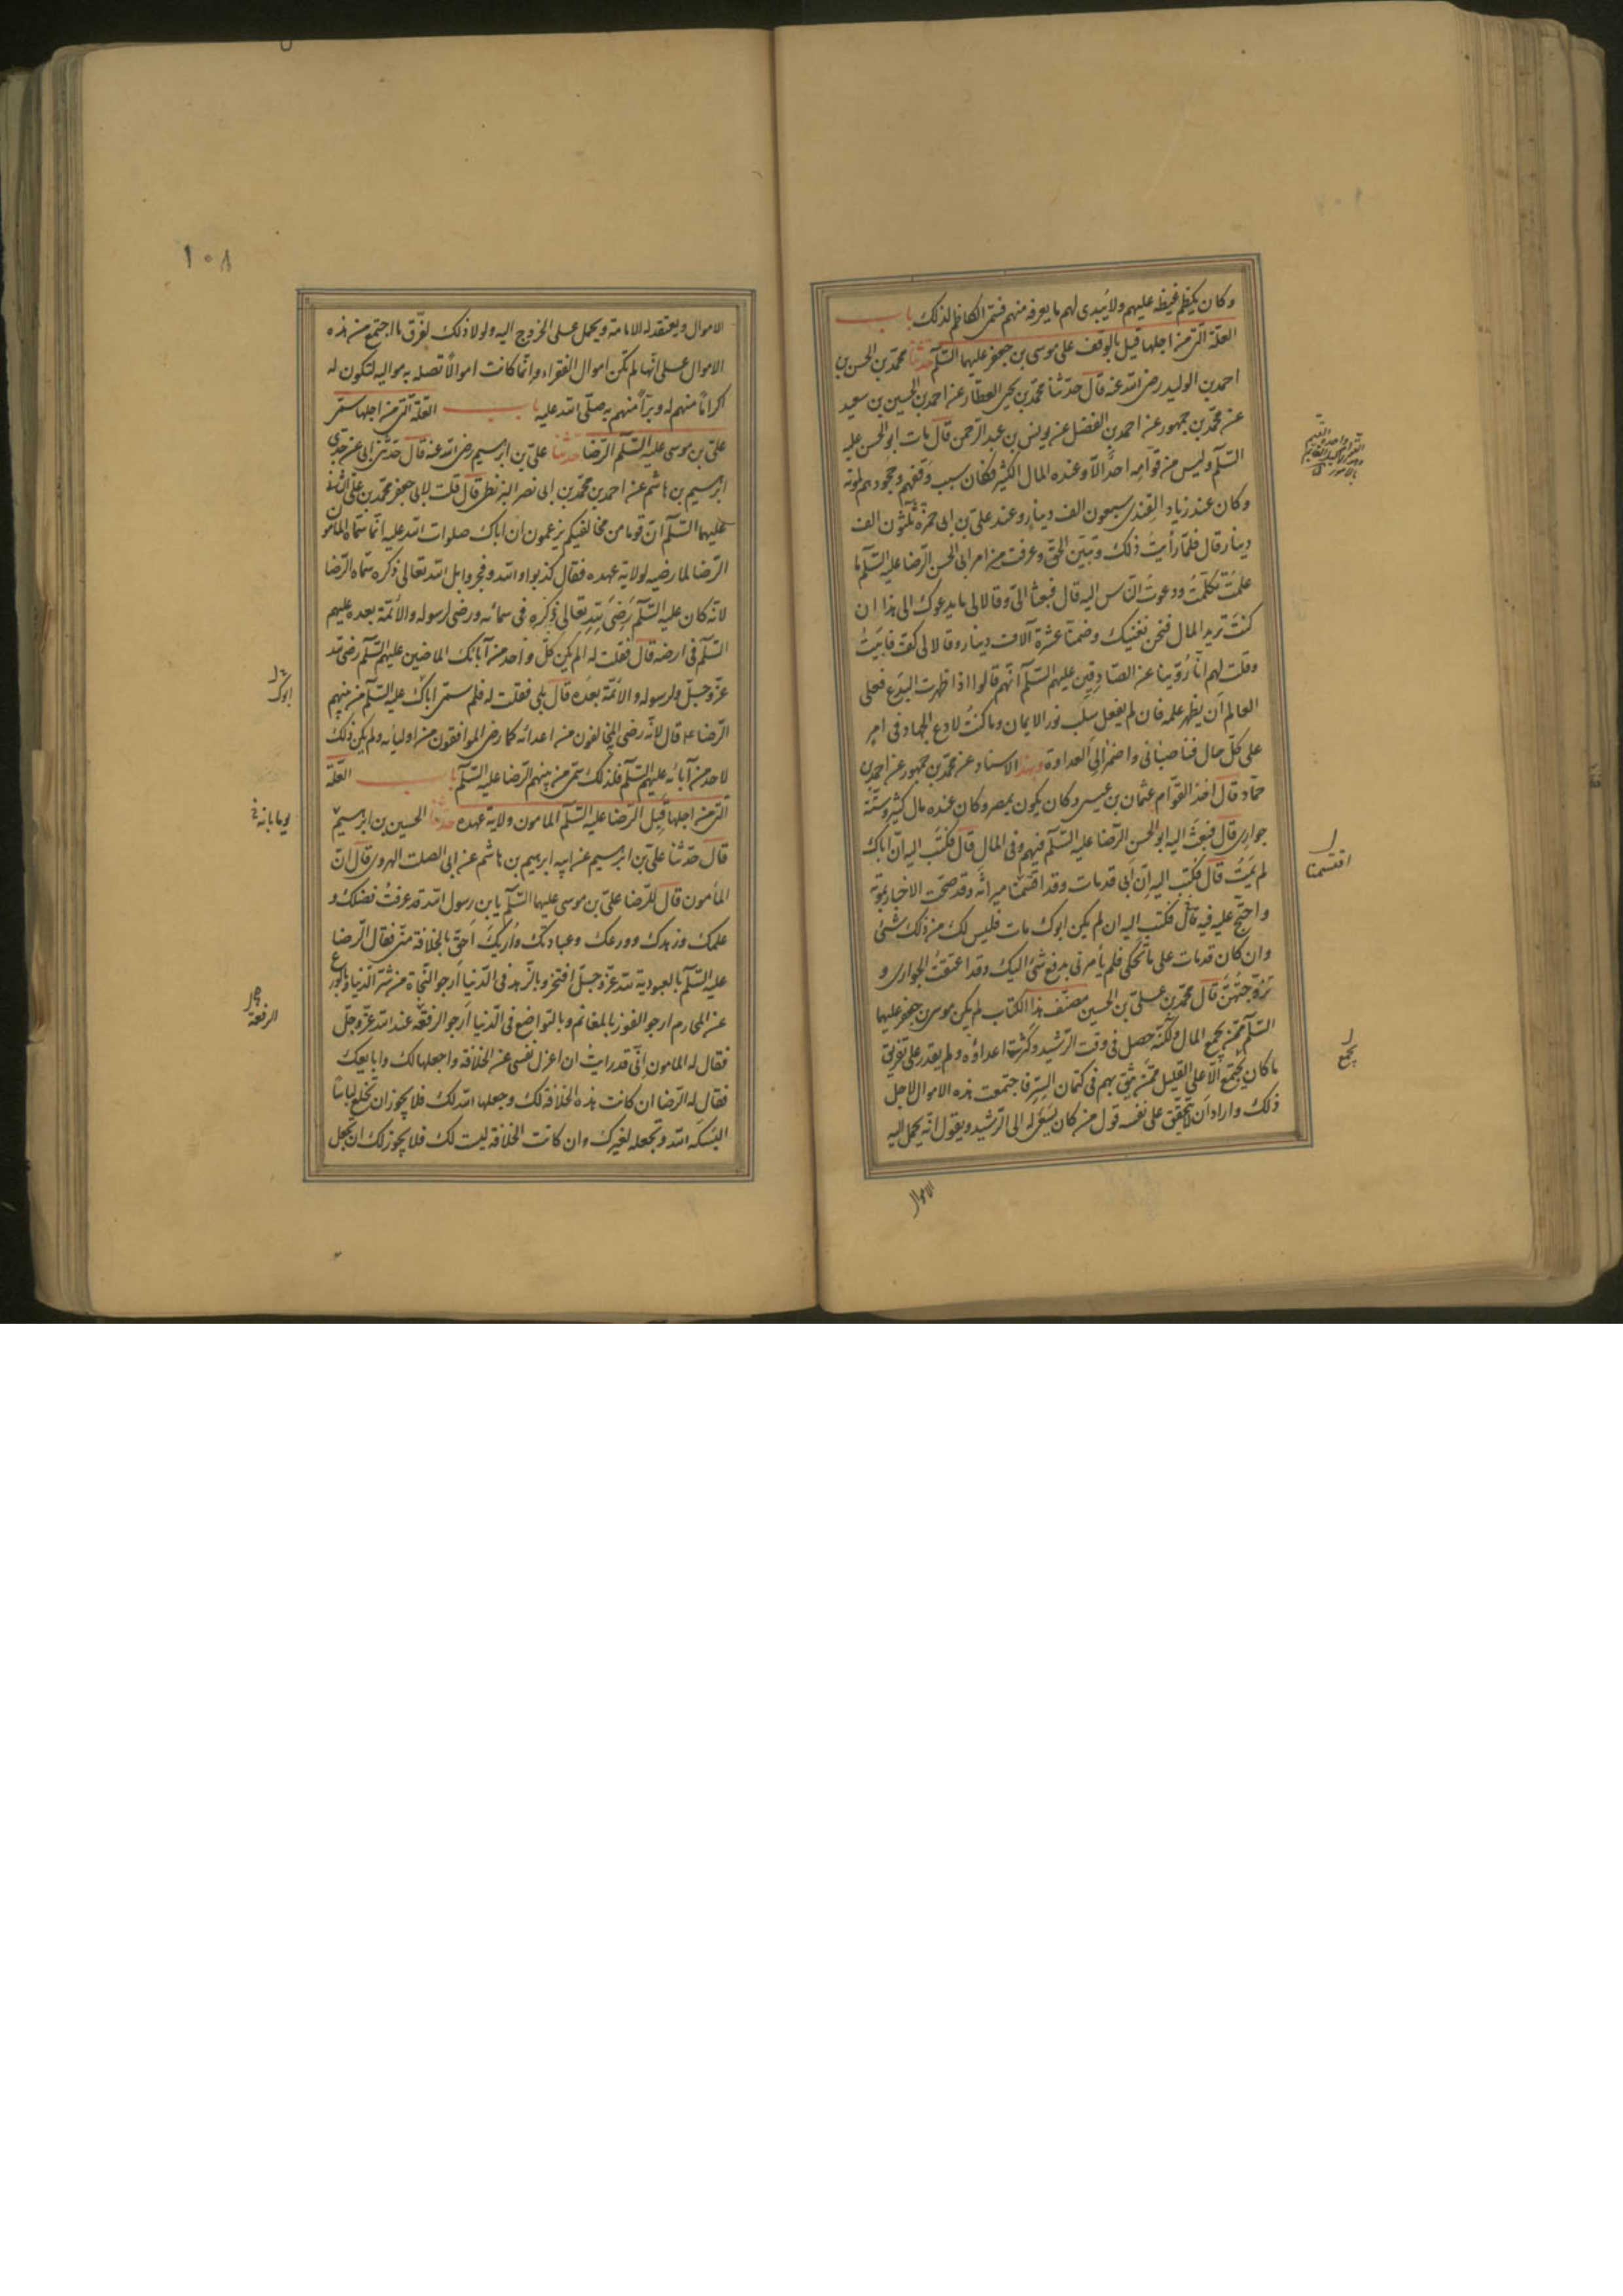 وكان يكظم غيظه عليهم ولا يبدى لهم ما يعرفه منهم فسمّى الكاظم لذلك باب
العلّة الّتى من اجلها قيل بالوقف على موسى بن جعفر عليهما السّلم حدّثنا محمّد بن الحسن بن
احمد بن الوليد رضى الله عنه قال حدّثنا محمّد بن يحيى العطّار عن احمد بن الحسين بن سعيد
عن محمّد بن جمهور عن احمد بن الفضل عن يونس بن عبد الرّحمن قال مات ابو الحسن عليه
السّلم وليس من قوّامه احدٌ الّا وعنده المال الكثير فكان سبب وقفهم وجحودهم لموته
وكان عند زياد القندى سبعون الف دينار وعند على بن ابى حمزة ثلثون الف
دينار قال فلمّا رأيتُ ذلك وتبيّن الحقّ وعرفت من امر ابى الحسن الرّضا عليه السّلم ما
علمتُ تكلّمتُ ودعوتُ النّاس اليه قال فبعثا الىّ وقالا لى ما يدعوك الى هذا ان
كنتَ تريد المال فنحن نغنيك وضمنا عشرة آلاف دينار وقالا لى كفّ فابيتُ
وقلت لهم انّا رُوّينا عن الصّادقِين عليهم السّلم انّهم قالوا اذا ظهرت البدع فعلى
العالم اَن يظهر علمه فان لم يفعل سلب نور الايمان وما كنتُ لادع الجهاد فى امر
على كلّ حال فناصبانى واضمرا لىَ العداوة وبهذا الاسناد عن محمّد بن جمهور عن احمد بن
حمّاد قال احد القوّام عثمان بن عيسى وكان يكون بمصر وكان عنده مال كثير وستّة
جوارى قال فبعث اليه ابو الحسن الرّضا عليه السّلم فيهم وفى المال قال فكتب اليه انّ اباك
لم يَمُت قال فكتب اليه انّ اَبى قد مات وقد اقتسمنا ميراثه وقد صحّت الاخبار بموته
واحتجّ عليه فيه قال فكتب اليه ان لم يكن ابوك مات فليس لك من ذلك شىئ
وان كان قد مات على ما تحكى فلم يأمرنى بدفع شئ اليك وقد اعتقتُ الجوارى و
تزوّجتهُنّ قال محمّد بن على بن الحسين مصنّف هذا الكتاب لم يكن موسى بن جعفر عليهما
السّلم ممّن يجمع المال ولكنّه حصل فى وقت الرّشيد وكثرت اعداؤه ولم يقدر على تفريق
ما كان يجتمع الّا على القليل ممّن يثق بهم فى كتمان السّرّ فاجتمعت هذه الاموال لاجل
ذلك واراد اَن لا يحقّق على نفسه قول من كان يسعى به الى الرّشيد ويقول انّه يحمل اليه
الاموال
اقتسمنا
يجمع
١٠٨
الاموال ويعتقد له الامامة ويحمل على الخروج اليه ولولا ذلك لفرّق ما اجتمع من هذه
الاموال على انّها لم تكن اموال الفقراء وانّما كانت اموالًا تصله به مواليه لتكون له
اكرامًا منهم له وبرّاً منهم به صلّى الله عليه باب العلّة الّتى من اجلها سمّى
علىّ بن موسى عليه السّلم الرّضا حدّثنا على بن ابرهيم رضى الله عنه قال حدّثنى ابى عن جدّى
ابرهيم بن هاشم عن احمد بن محمّد بن ابى نصر البزنطى قال قلت لابى جعفر محمّد بن على الثانى
عليهما السّلم انّ قوما من مخالفيكم يزعمون ان اباك صلوات الله عليه انّما سمّاه المامون
الرّضا لما رضيه لولاية عهده فقال كذبوا والله وفجروا بل الله تعالى ذكره سمّاه الرّضا
لانّه كان عليه السّلم رَضِىَ لله تعالى ذكره فى سمائه ورضى لرسوله والائمّة بعده عليهم
السّلم فى ارضه قال فقلت له الم يكن كلّ واحد من آبائك الماضين عليهم السّلم رضى لله
عزّ وجلّ ولرسوله والائمّة بعده قال بلى فقلت له فلم سمّى اباك عليه السّلم من بينهم
الرّضا عه قال لانّه رضى به المخالفون من اعدائه كما رضى الموافقون من اوليائه ولم يكن ذلك
لاحد من آبائه عليهم السّلم فلذلك سمّى من بينهم الرّضا عليه السّلم باب العلّة
الّتى من اجلها قبل الرّضا عليه السّلم المامون ولاية عهده حدّثنا الحسين بن ابرهيم
قال حدّثنا على بن ابرهيم عن ابيه ابرهيم بن هاشم عن ابى الصلت الهروى قال انّ
المأمون قال للرّضا علىّ بن موسى عليهما السّلم يابن رسول الله قد عرفتُ فضلك و
علمك وزهدك وورعك وعبادتك واُريكَ اَحقّ بالخلافة منّى فقال الرّضا
عليه السّلم بالعبودية لله عزّ وجلّ افتخر وبالزّهد فى الدّنيا اَرجو النّجاة من شرّ الدّنيا وبالورع
عن المحارم ارجو الفوز بالمغانم وبالتواضع فى الدّنيا اَرجو الرفعة عند الله عزّ وجلّ
فقال له المامون اِنّى قد رايتُ ان اعزل نفسى عن الخلافة واجعلها لك وابايعك
فقال له الرّضا ان كانت هذه الخلافة لك وجعلها الله لك فلا يجوز ان تخلع لباسًا
البسكه الله وتجعله لغيرك وان كانت الخلافة ليست لك فلا يجوز لك ان تجعل
ابوك
الرفعة